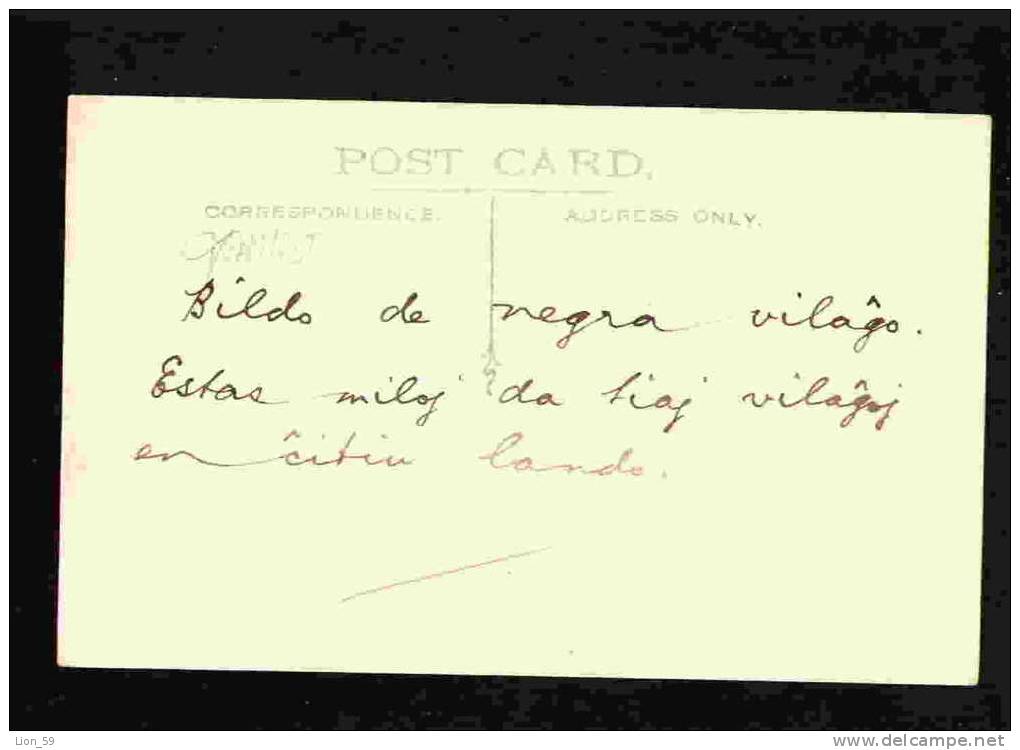 POST CARD.
CORRESPONDENCE.
ADDRESS ONLY.
Bildo de negra vilaĝo.
Estas miloj da tiaj vilaĝoj
en ĉitiu lando.
Lion_59
www.delcampe.net